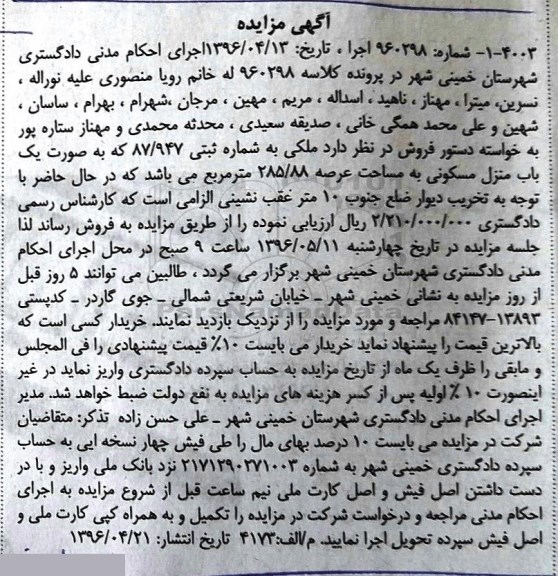 آگهی مزایده
۴۰۰۳-۱- شماره: ۹۶۰۲۹۸ اجرا ، تاریخ: ۱۳۹۶/۰۴/۱۳اجرای احکام مدنی دادگستری
شهرستان خمینی شهر در پرونده کلاسه ۹۶۰۲۹۸ له خانم رویا منصوری علیه نوراله ،
نسرین، میترا ، مهناز ، ناهید ، اسداله ، مریم ، مهین ، مرجان ،شهرام ، بهرام ، ساسان ،
شهین و علی محمد همگی خانی ، صدیقه سعیدی ، محدثه محمدی و مهناز ستاره پور
به خواسته دستور فروش در نظر دارد ملکی به شماره ثبتی ۸۷/۹۴۷ که به صورت یک
باب منزل مسکونی به مساحت عرصه ۲۸۵/۸۸ مترمربع می باشد که در حال حاضر با
توجه به تخریب دیوار ضلع جنوب ۱۰ متر عقب نشینی الزامی است که کارشناس رسمی
دادگستری ۲/۲۱۰/۰۰۰/۰۰۰ ریال ارزیابی نموده را از طریق مزایده به فروش رساند لذا
جلسه مزایده در تاریخ چهارشنبه ۱۳۹۶/۰۵/۱۱ ساعت ۹ صبح در محل اجرای احکام
مدنی دادگستری شهرستان خمینی شهر برگزار می گردد ، طالبین می توانند ۵ روز قبل
از روز مزایده به نشانی خمینی شهر ـ خیابان شریعتی شمالی ـ جوی گاردر ـ کدپستی
۱۳۸۹۳-۸۴۱۴۷ مراجعه و مورد مزایده را از نزدیک بازدید نمایند. خریدار کسی است که
بالاترین قیمت را پیشنهاد نماید خریدار می بایست ۱۰٪ قیمت پیشنهادی را فی المجلس
و مابقی را ظرف یک ماه از تاریخ مزایده به حساب سپرده دادگستری واریز نماید در غیر
اینصورت ۱۰ ٪ اولیه پس از کسر هزینه های مزایده به نفع دولت ضبط خواهد شد. مدیر
اجرای احکام مدنی دادگستری شهرستان خمینی شهر ـ علی حسن زاده تذکر: متقاضیان
شرکت در مزایده می بایست ۱۰ درصد بهای مال را طی فیش چهار نسخه ایی به حساب
سپرده دادگستری خمینی شهر به شماره ۲۱۷۱۲۹۰۲۷۱۰۰۳ نزد بانک ملی واریز و با در
دست داشتن اصل فیش و اصل کارت ملی نیم ساعت قبل از شروع مزایده به اجرای
احکام مدنی مراجعه و درخواست شرکت در مزایده را تکمیل و به همراه کپی کارت ملی و
اصل فیش سپرده تحویل اجرا نمایید. م/الف:۴۱۷۳ تاریخ انتشار: ۱۳۹۶/۰۴/۲۱